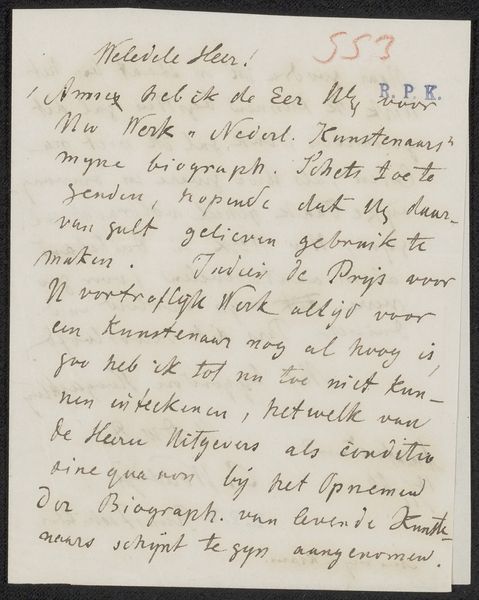 Weledele Heer!
553
R. P. K.
Annex heb ik de Eer UEg voor
Uw Werk „Nederl. Kunstenaars"
myne biograph. Schets toe te
zenden, hopende dat UEg daar-
van zult gelieven gebruik te
maken. Indien de Prijs voor
U vortreflyk Werk altijd voor
een Kunstenaar nog al hoog is,
zoo heb ik tot nu toe niet kun-
nen inteekenen, hetwelk van
de Heeren Uitgevers als conditio
sine qua non by het Opnemen
der Biograph. van levende Kunste-
naars schijnt te zyn aangenomen.